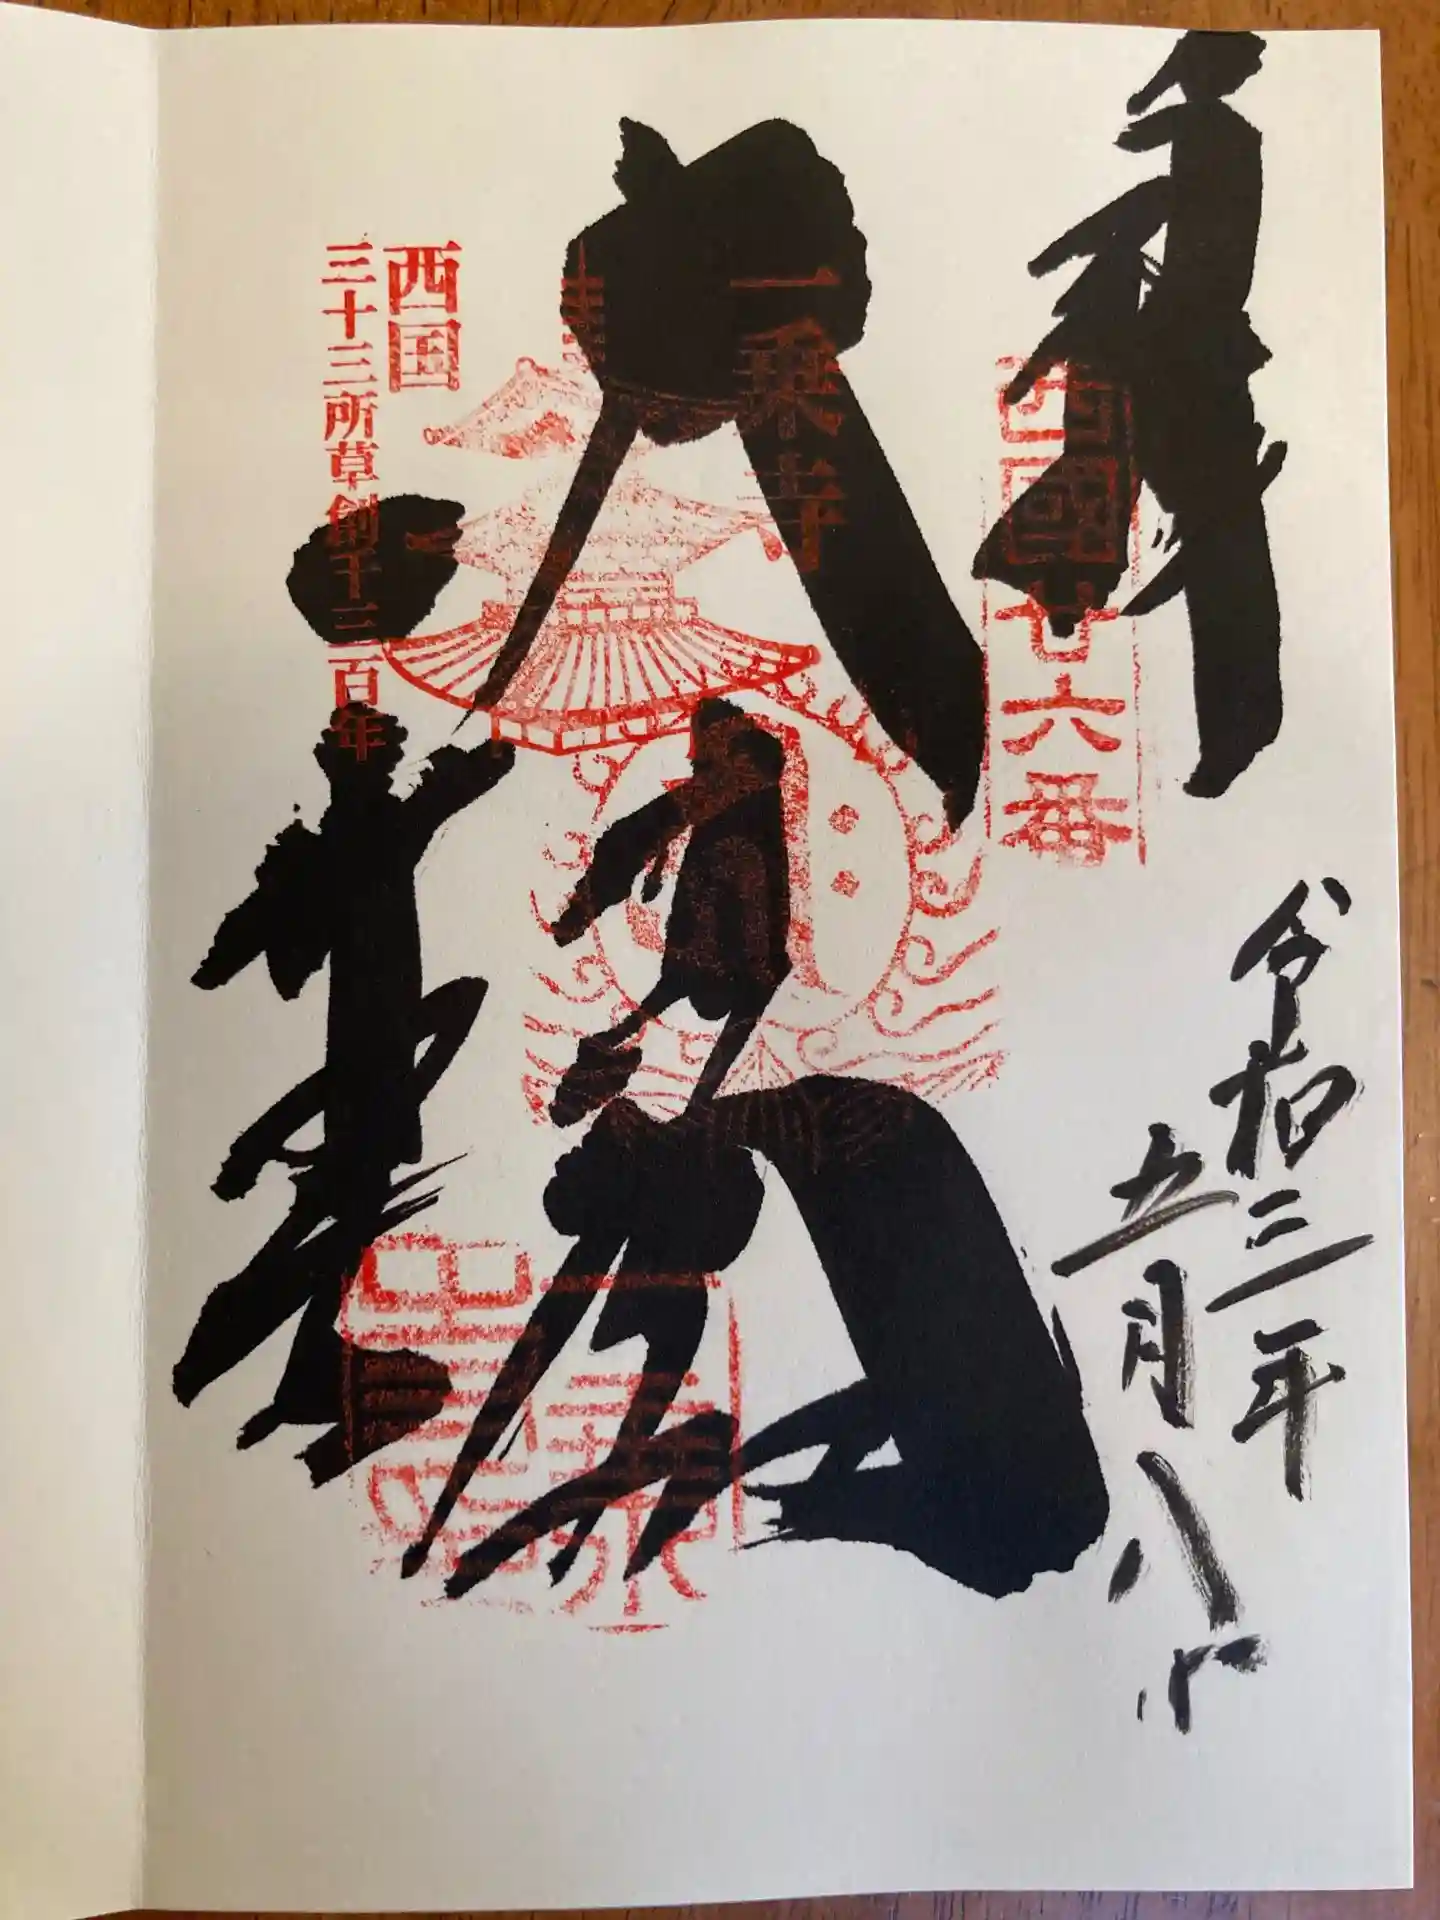 奉拝
西國廿六番
令和三年
五月八日
一乗寺
大悲殿
一乗寺
西国
三十三所草創千三百年